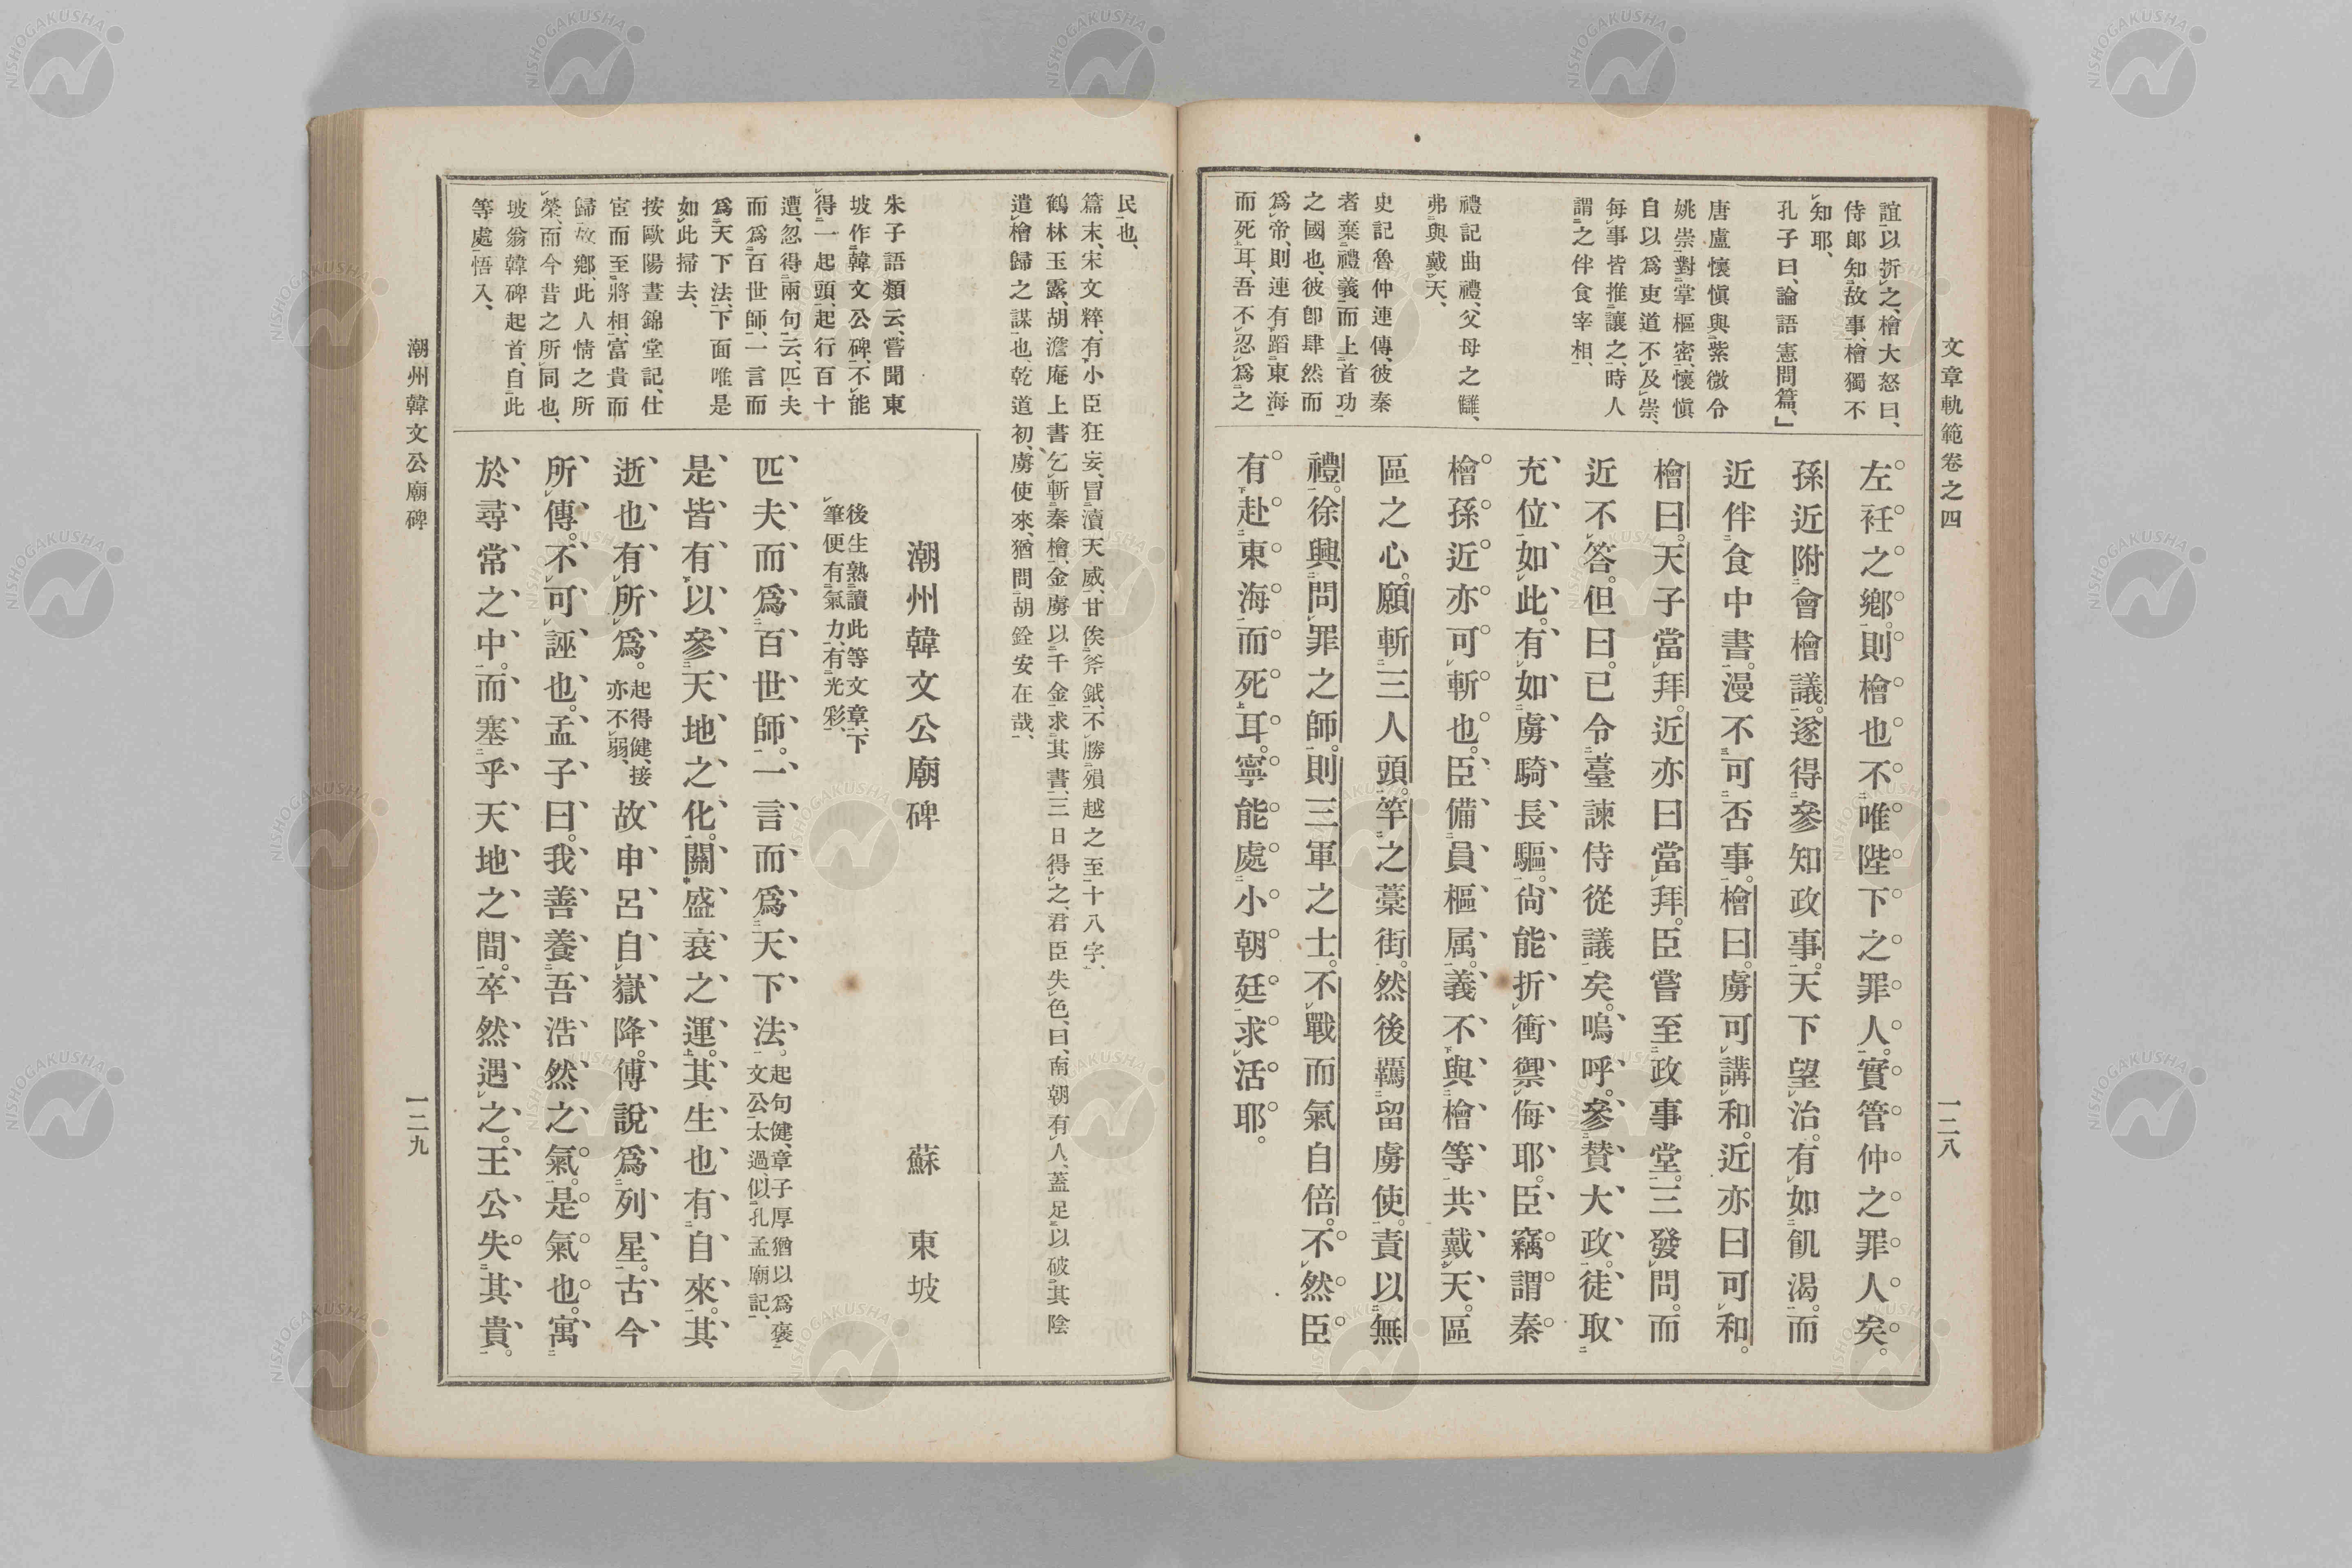 文章軌範卷之四
一二八
誼以折之、檜大怒曰、
侍郎知故事、檜獨不
知耶、
孔子曰、論語憲問篇、」
唐盧懷愼與紫微令
姚崇對掌樞密、懷愼
自以爲吏道不及崇、
每事皆推讓之、時人
謂之伴食宰相、
禮記曲禮、父母之讎、
弗與戴天、
史記魯仲連傳、彼秦
者棄禮義而上首功
之國也、彼卽肆然而
爲帝、則連有蹈東海
而死耳、吾不忍爲之
左衽之鄕。則檜也不唯陛下之罪人。實管仲之罪人矣。
孫近附會檜議。遂得參知政事。天下望治。有如飢渴。而
近伴食中書。漫不可否事。檜曰。虜可講和。近亦曰可和。
檜曰。天子當拜。近亦曰當拜。臣嘗至政事堂。三發問。而
近不答。但曰。已令臺諫侍從議矣。嗚呼。參贊大政。徒取
充位如此。有如虜騎長驅。尙能折衝禦侮耶。臣竊謂秦
檜孫近亦可斬也。臣備員樞属。義不與檜等共戴天。區
區之心。願斬三人頭。竿之藁街。然後羈留虜使。責以無
禮。徐興問罪之師。則三軍之士。不戰而氣自倍。不然臣
有赴東海而死耳。寧能處小朝廷求活耶。
民也、
篇末、宋文粹、有小臣狂妄、冒瀆天威、甘俟斧鉞、不勝殞越之至十八字、
鶴林玉露、胡澹庵上書乞斬秦檜、金虜以千金求其書、三日得之、君臣失色、曰、南朝有人、蓋足以破其陰
遣檜歸之謀也、乾道初、虜使來、猶問胡銓安在哉、
朱子語類云、嘗聞東
坡作韓文公碑、不能
得一起頭、起行百十
遭、忽得兩句云、匹夫
而爲百世師、一言而
爲天下法、下面唯是
如此掃去、
按歐陽晝錦堂記、仕
宦而至將相、富貴而
歸故鄕、此人情之所
榮、而今昔之所同也、
坡翁韓碑起首、自此
等處悟入、
潮州韓文公廟碑　蘇東坡
後生熟讀此等文章、下
筆便有氣力、有光彩、
匹夫而爲百世師。一言而爲天下法。起句健、章子厚猶以爲褒文公太過、似孔孟廟記、
是皆有以參天地之化。關盛衰之運。其生也有自來。其
逝也有所爲。起得健、接亦不弱、故申呂自嶽降。傅說爲列星。古今
所傳。不可誣也。孟子曰。我善養吾浩然之氣。是氣也。寓
於尋常之中。而塞乎天地之間。卒然遇之。王公失其貴。
潮州韓文公廟碑
一二九